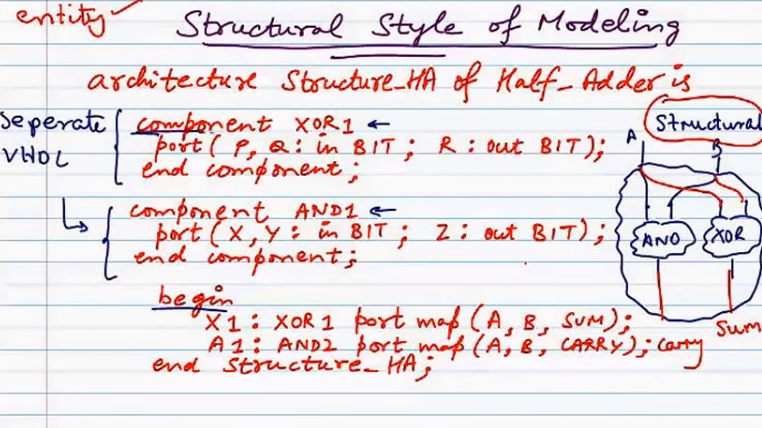 entity
Structural Style of Modeling
architecture Structure_HA of Half_Adder is
Seperate
VHDL
component XOR1
port( P, Q: in BIT ; R : out BIT);
end component;
component AND1
port(X, Y: in BIT ; Z : out BIT);
end component;
begin
X1 : XOR1 port map (A, B, SUM);
A1 : AND2 port map (A, B, CARRY);
end Structure_HA;
Structural
A
B
AND
XOR
Sum
Carry